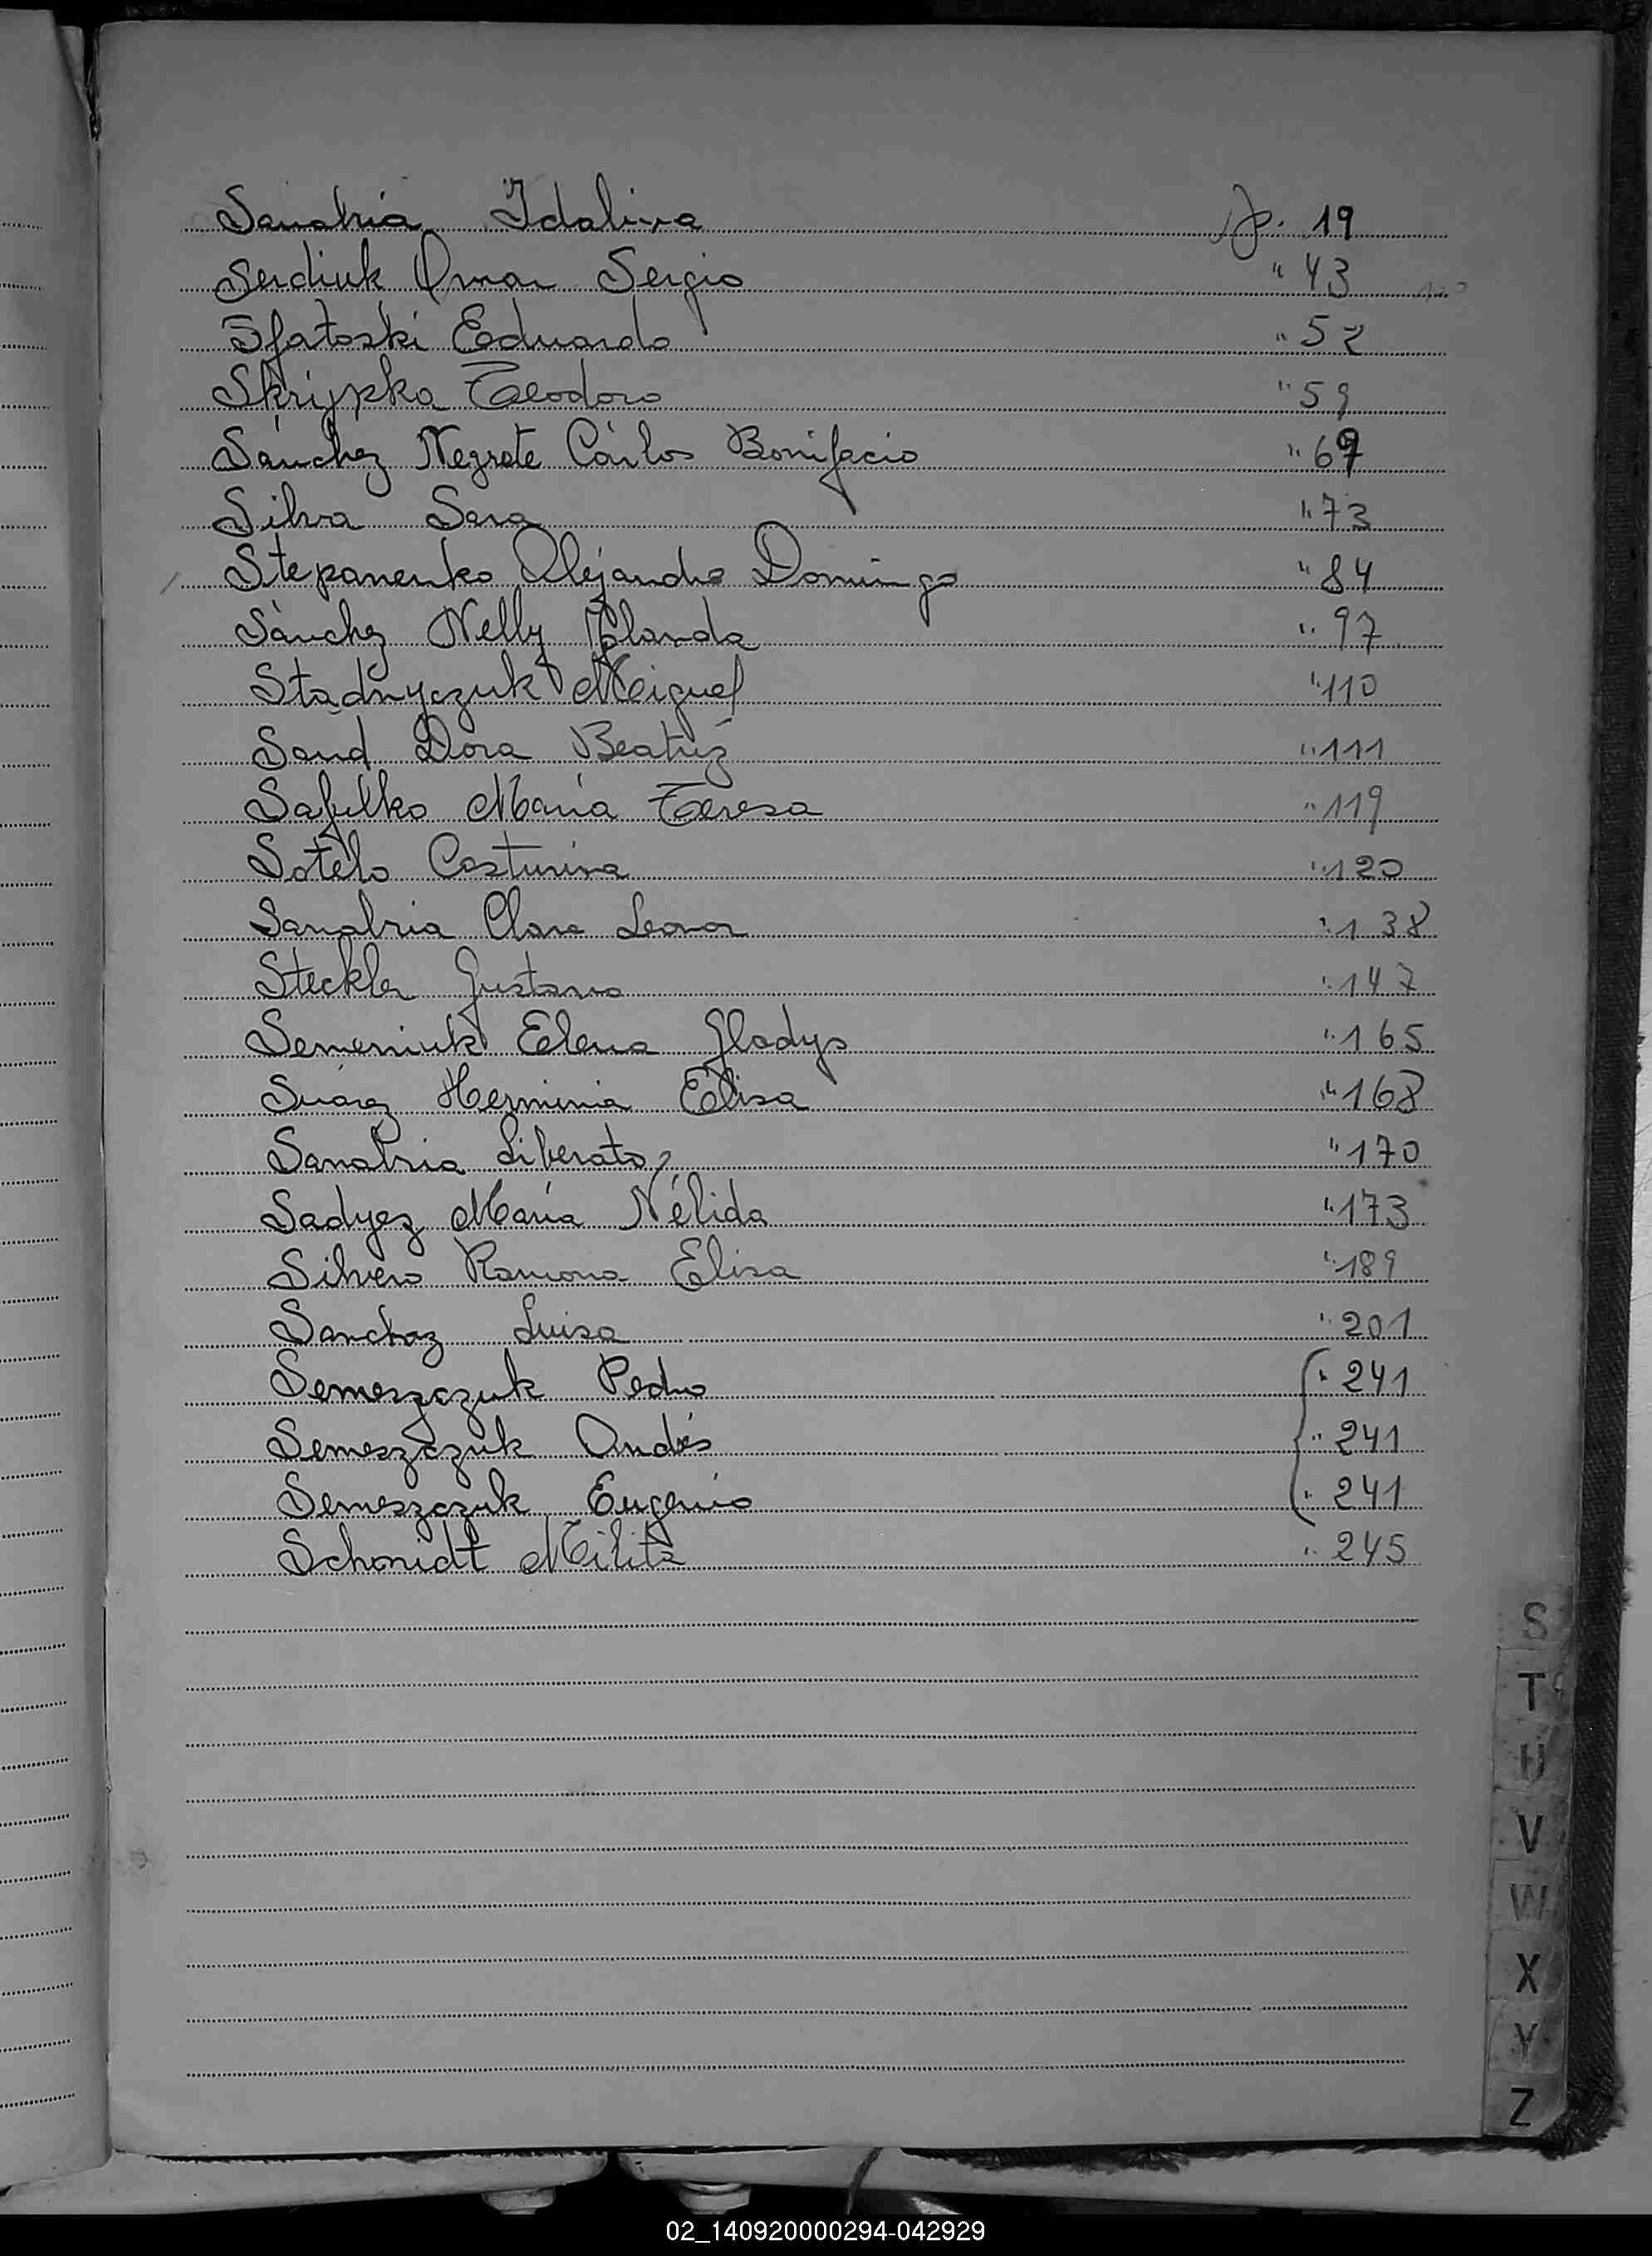 Sanabria Idalina p. 19
Serdiuk Omar Sergio " 43
Sfatoski Eduardo " 52
Skrypka Teodoro " 59
Sánchez Negrete Cárlos Bonifacio " 69
Silva Sara " 73
Stepanenko Alejandro Domingo " 84
Sánchez Nelly Yolanda " 97
Stadnyczuk Miguel " 110
Sand Dora Beatríz " 111
Safulko María Teresa " 119
Sotelo Casturina " 120
Sanabria Clara Leonor " 138
Steckler Gustavo " 147
Semeniuk Elena Gladys " 165
Suárez Herminia Elisa " 168
Sanabria Liberato " 170
Sadyez María Nélida " 173
Silvero Ramona Elisa " 189
Sanchez Luisa " 201
Semeszczuk Pedro " 241
Semeszczuk Andrés " 241
Semeszczuk Eugenio " 241
Schmidt Militz " 245
S
T
U
V
W
X
Y
Z
02_140920000294-042929